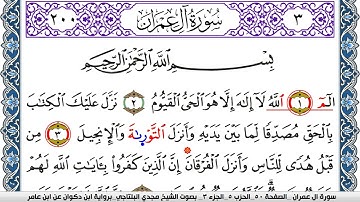 ٣ سُورَةُ آلِ عِمْرَان ٢٠٠
بِسْمِ اللَّهِ الرَّحْمَٰنِ الرَّحِيمِ
الٓمٓ ١ اللَّهُ لَا إِلَٰهَ إِلَّا هُوَ الْحَيُّ الْقَيُّومُ ٢ نَزَّلَ عَلَيْكَ الْكِتَابَ
بِالْحَقِّ مُصَدِّقًا لِمَا بَيْنَ يَدَيْهِ وَأَنزَلَ التَّوْرَىٰةَ وَالْإِنجِيلَ ٣ مِن
قَبْلُ هُدًى لِلنَّاسِ وَأَنزَلَ الْفُرْقَانَ إِنَّ الَّذِينَ كَفَرُوا بِـَٔايَاتِ اللَّهِ لَهُمْ
سورة آل عمران . الصفحة ٥٠ . الحزب ٥ . الجزء ٣ . بصوت الشيخ مجدي البلتاجي . برواية ابن ذكوان عن ابن عامر